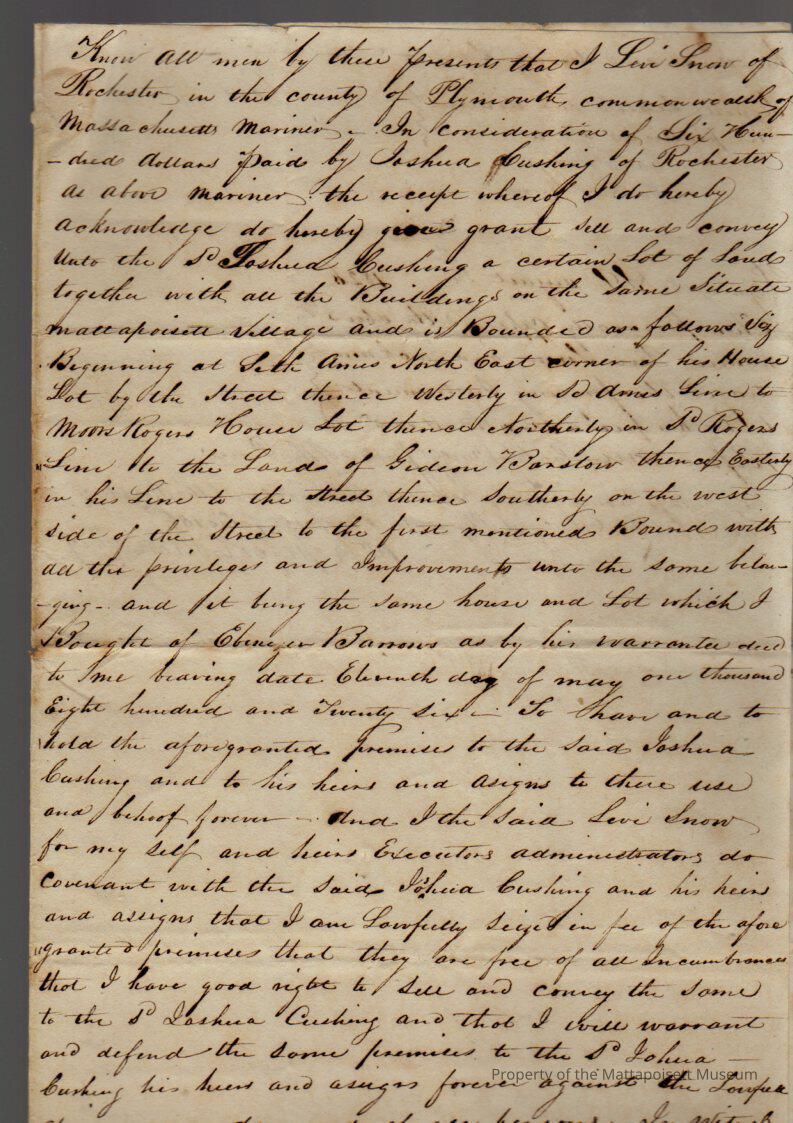 Know all men by these Presents that I Levi Snow of
Rochester in the county of Plymouth commonwealth of
Massachusetts Mariner - In consideration of Six Hun-
-dred dollars paid by Joshua Cushing of Rochester
as above mariner the receipt whereof I do hereby
acknowledge do hereby give grant sell and convey
Unto the Sd Joshua Cushing a certain Lot of Land
together with all the Buildings on the Same Situate
mattapoisett Village and is Bounded as follows Viz
Beginning at Seth Ames North East corner of his House
Lot by the Street thence Westerly in Sd Ames Line to
Moors Rogers House Lot thence Northerly in Sd Rogers
Line to the Lands of Gideon Barstow thence Easterly
in his Line to the Street thence Southerly on the west
side of the Street to the first mentioned Bound with
all the privileges and Improvements unto the same belon-
-ging - and it being the same house and Lot which I
Bought of Ebenezer Barrows as by his warrantee deed
to me bearing date Eleventh day of may one thousand
Eight hundred and Twenty six - To have and to
hold the aforegranted premises to the said Joshua
Cushing and to his heirs and asigns to there use
and behoof forever - And I the said Levi Snow
for my self and heirs Executors administrators do
covenant with the said Joshua Cushing and his heirs
and assigns that I am Lawfully Seized in fee of the afore
granted premises that they are free of all Incumbrances
that I have good right to sell and convey the same
to the Sd Joshua Cushing and that I will warrant
and defend the same premises to the Sd Johua -
Cushing his heirs and assigns forever against the Lawfull
Property of the Mattapoisett Museum